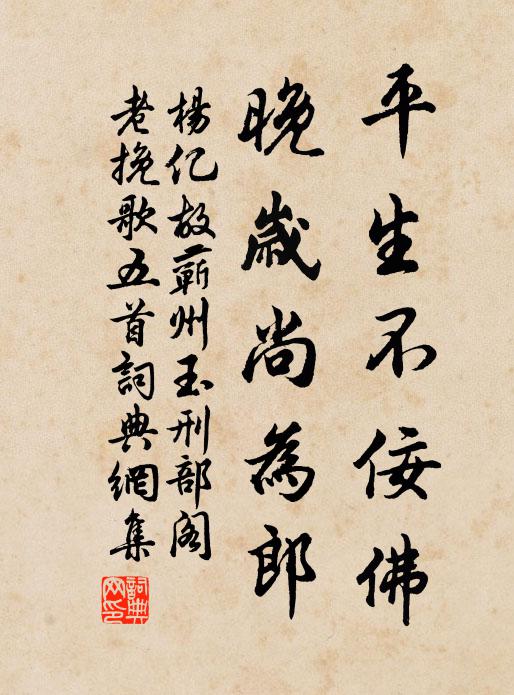 平生不佞佛
晚歲尚為郎
楊億故蘄州玉刑部閣
老挽歌五首詞典網集
詞典網印